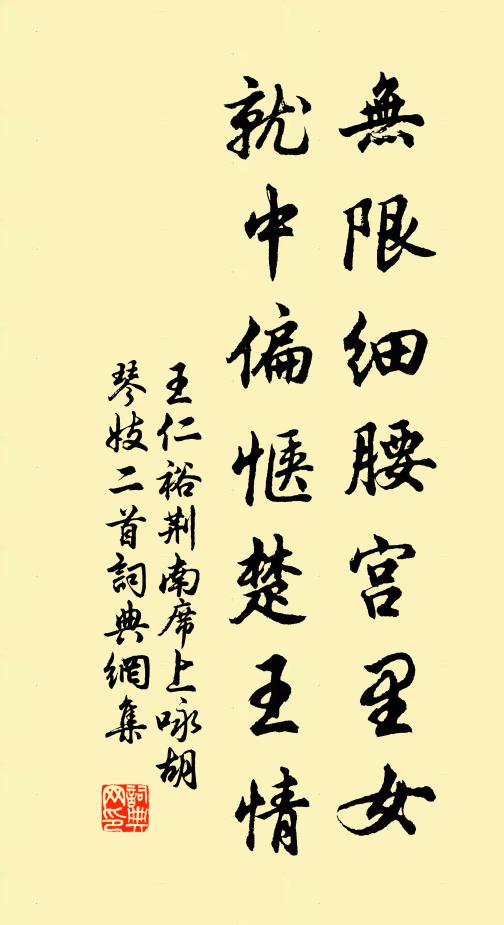 無限細腰宮里女
就中偏愜楚王情
王仁裕荆南席上咏胡
琴妓二首詞典網集
詞典
网印